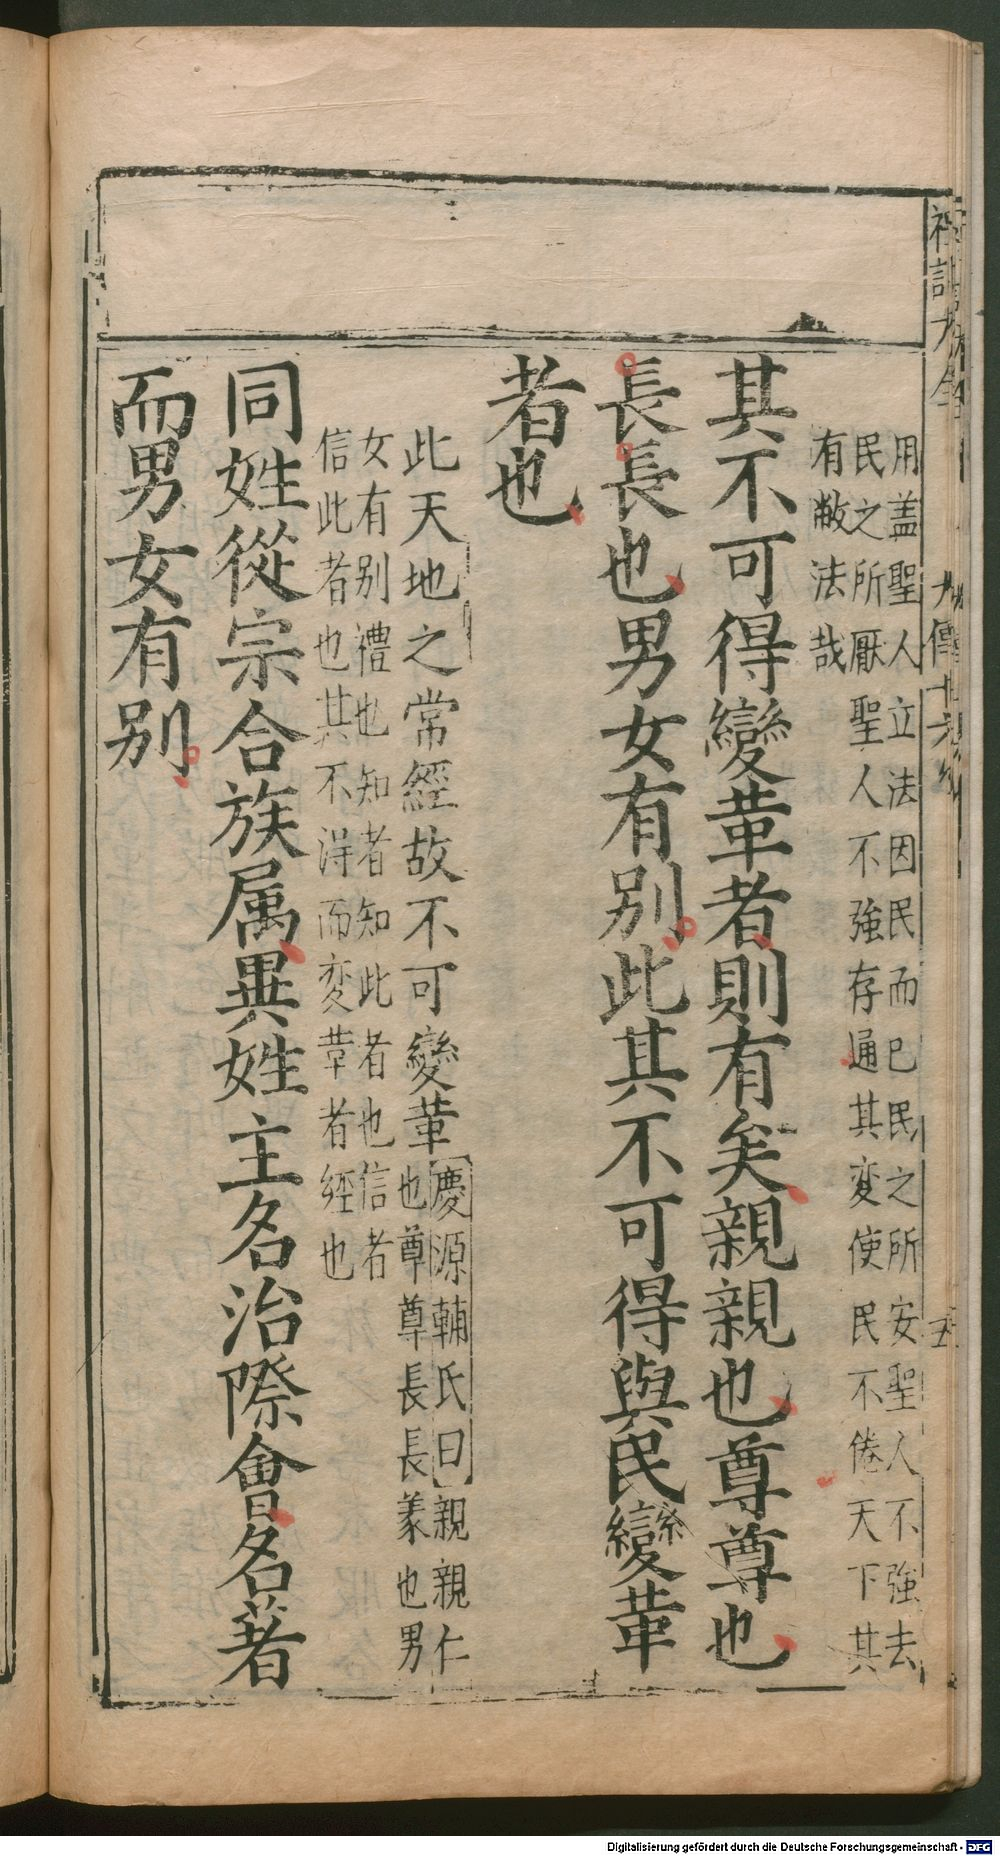 用盖聖人立法因民而已民之所安聖人不強去
民之所厭聖人不強存通其変使民不倦天下其
有敝法哉
其不可得變革者則有矣親親也尊尊也
長長也男女有別此其不可得與民變革
者也
此天地之常經故不可變革
慶源輔氏曰親親仁
也尊尊長長義也男
女有别禮也知者知此者也信者
信此者也其不淂而変革者經也
同姓從宗合族属異姓主名治際會名著
而男女有别
Digitalisierung gefördert durch die Deutsche Forschungsgemeinschaft - DFG